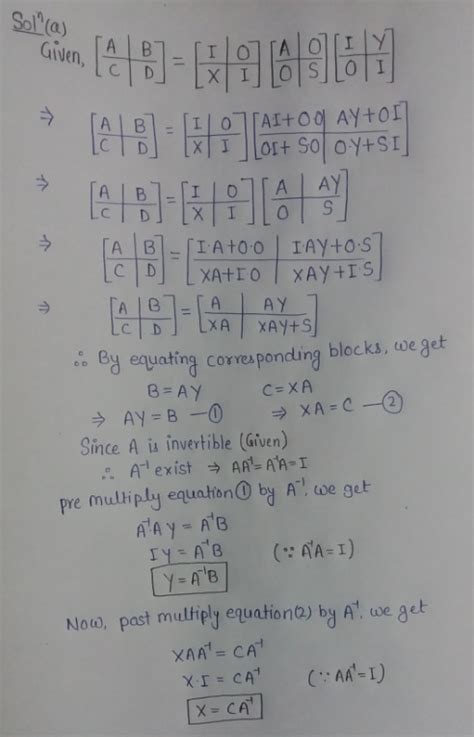 Solⁿ(a)
Given, [A | B / C | D] = [I | O / X | I] [A | O / O | S] [I | Y / O | I]
⇒ [A | B / C | D] = [I | O / X | I] [AI+OO | AY+OI / OI+SO | O·Y+SI]
⇒ [A | B / C | D] = [I | O / X | I] [A | AY / O | S]
⇒ [A | B / C | D] = [I·A+O·O | IAY+O·S / XA+IO | XAY+I·S]
⇒ [A | B / C | D] = [A | AY / XA | XAY+S]
∴ By equating corresponding blocks, we get
B=AY C=XA
⇒ AY=B —① ⇒ XA=C —②
Since A is invertible (Given)
∴ A⁻¹ exist ⇒ AA⁻¹=A⁻¹A=I
pre multiply equation① by A⁻¹, we get
A⁻¹AY = A⁻¹B
IY = A⁻¹B (∵ A⁻¹A=I)
Y=A⁻¹B
Now, past multiply equation(2) by A⁻¹, we get
XAA⁻¹ = CA⁻¹
X·I = CA⁻¹ (∵ AA⁻¹=I)
X = CA⁻¹